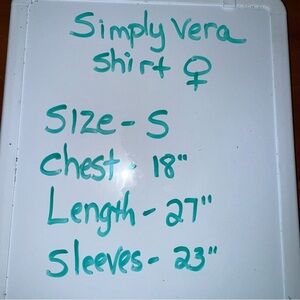 Simply Vera
Shirt ♀
Size - S
Chest - 18"
Length - 27"
Sleeves - 23"